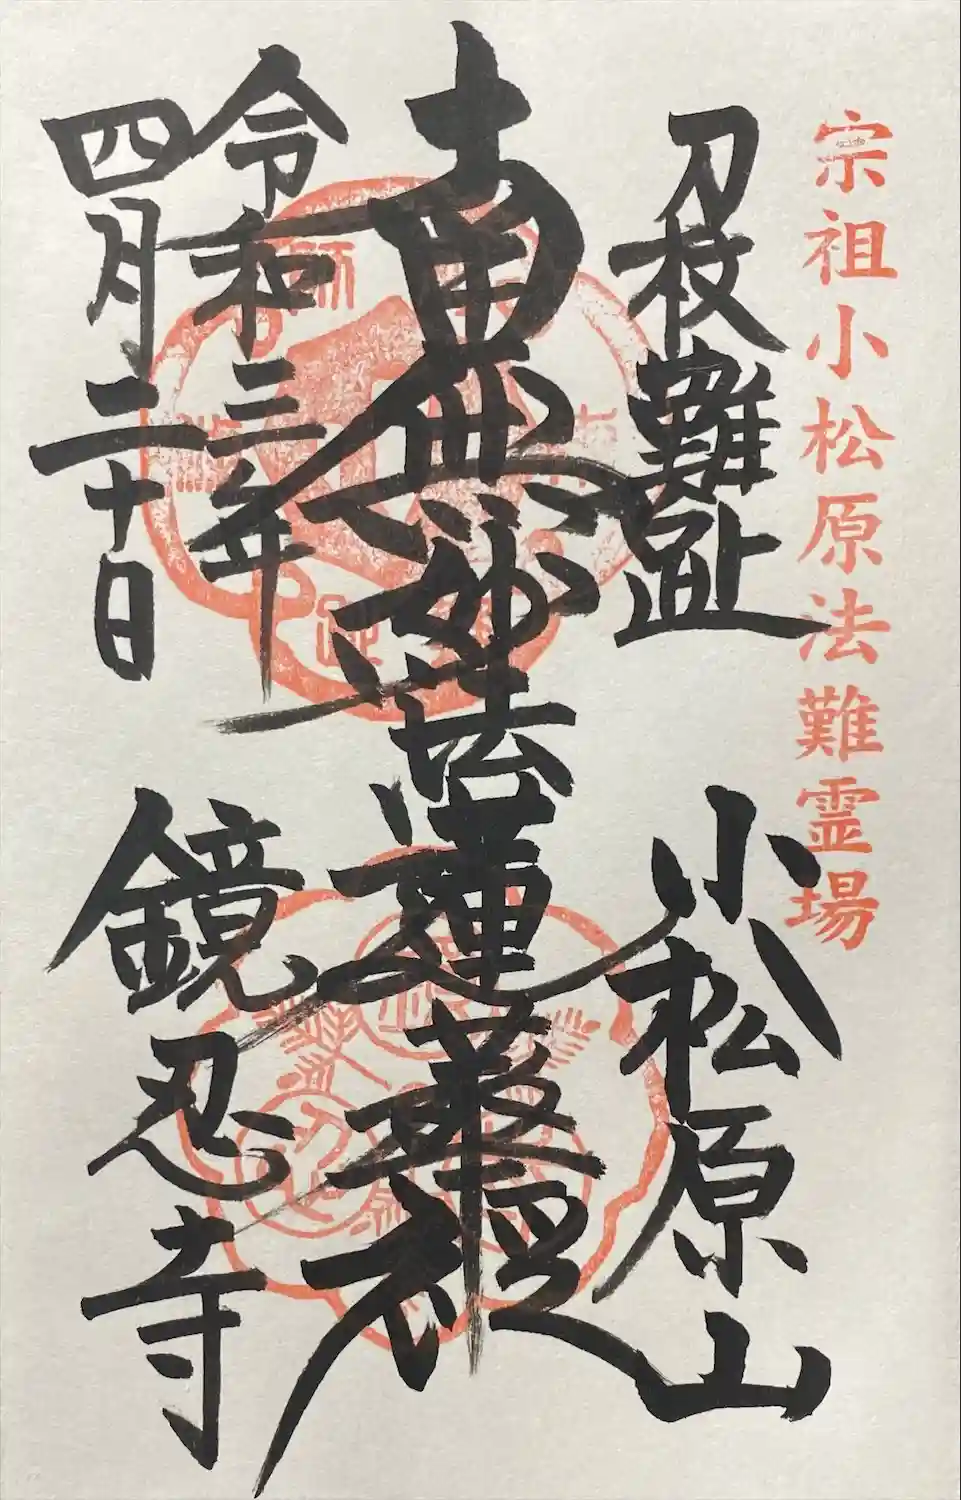 宗祖小松原法難霊場
刀杖難趾
小松原山
南無妙法蓮華経
令和三年
四月二十日
鏡忍寺